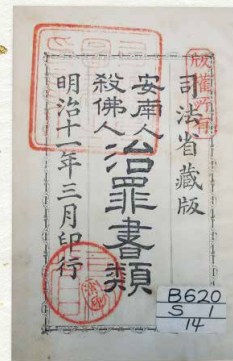 版權所有
司法省藏版
安南人
殺佛人
治罪書類
明治十一年三月印行
B620
S 1
14